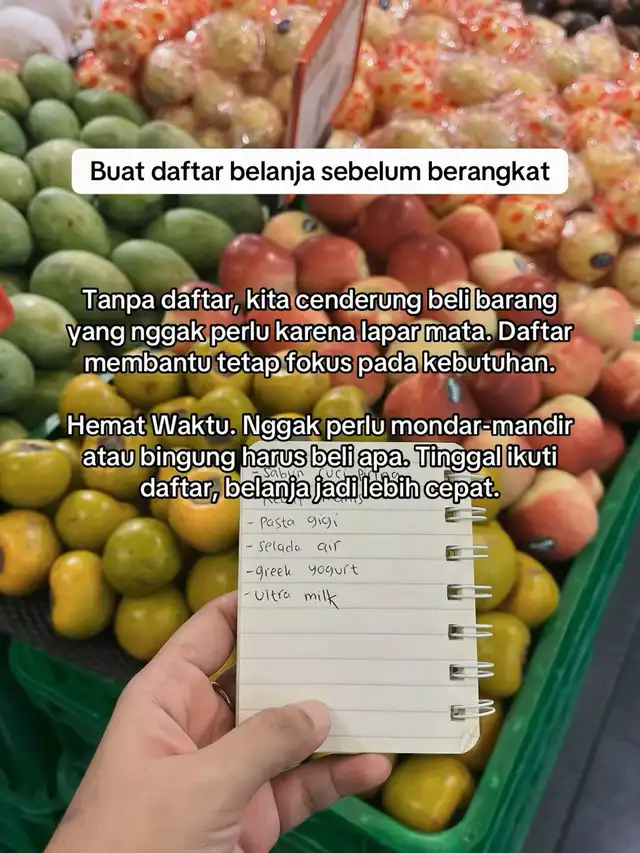 Buat daftar belanja sebelum berangkat
Tanpa daftar, kita cenderung beli barang
yang nggak perlu karena lapar mata. Daftar
membantu tetap fokus pada kebutuhan.
Hemat Waktu. Nggak perlu mondar-mandir
atau bingung harus beli apa. Tinggal ikuti
daftar, belanja jadi lebih cepat.
- Sabun cuci piring
- pasta gigi
- selada air
- greek yogurt
- ultra milk